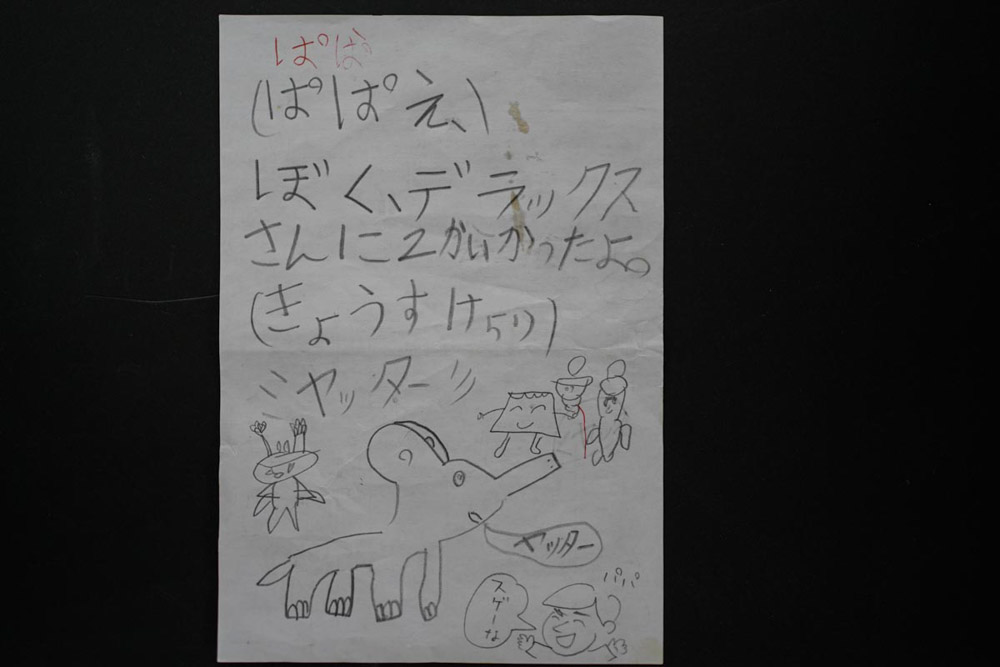 ぱぱ
(ぱぱえ、)
ぼく、デラックス
さんに2かいかったよ。
(きょうすけより)
ミヤッター〃
ヤッター
パパ
スゲーな